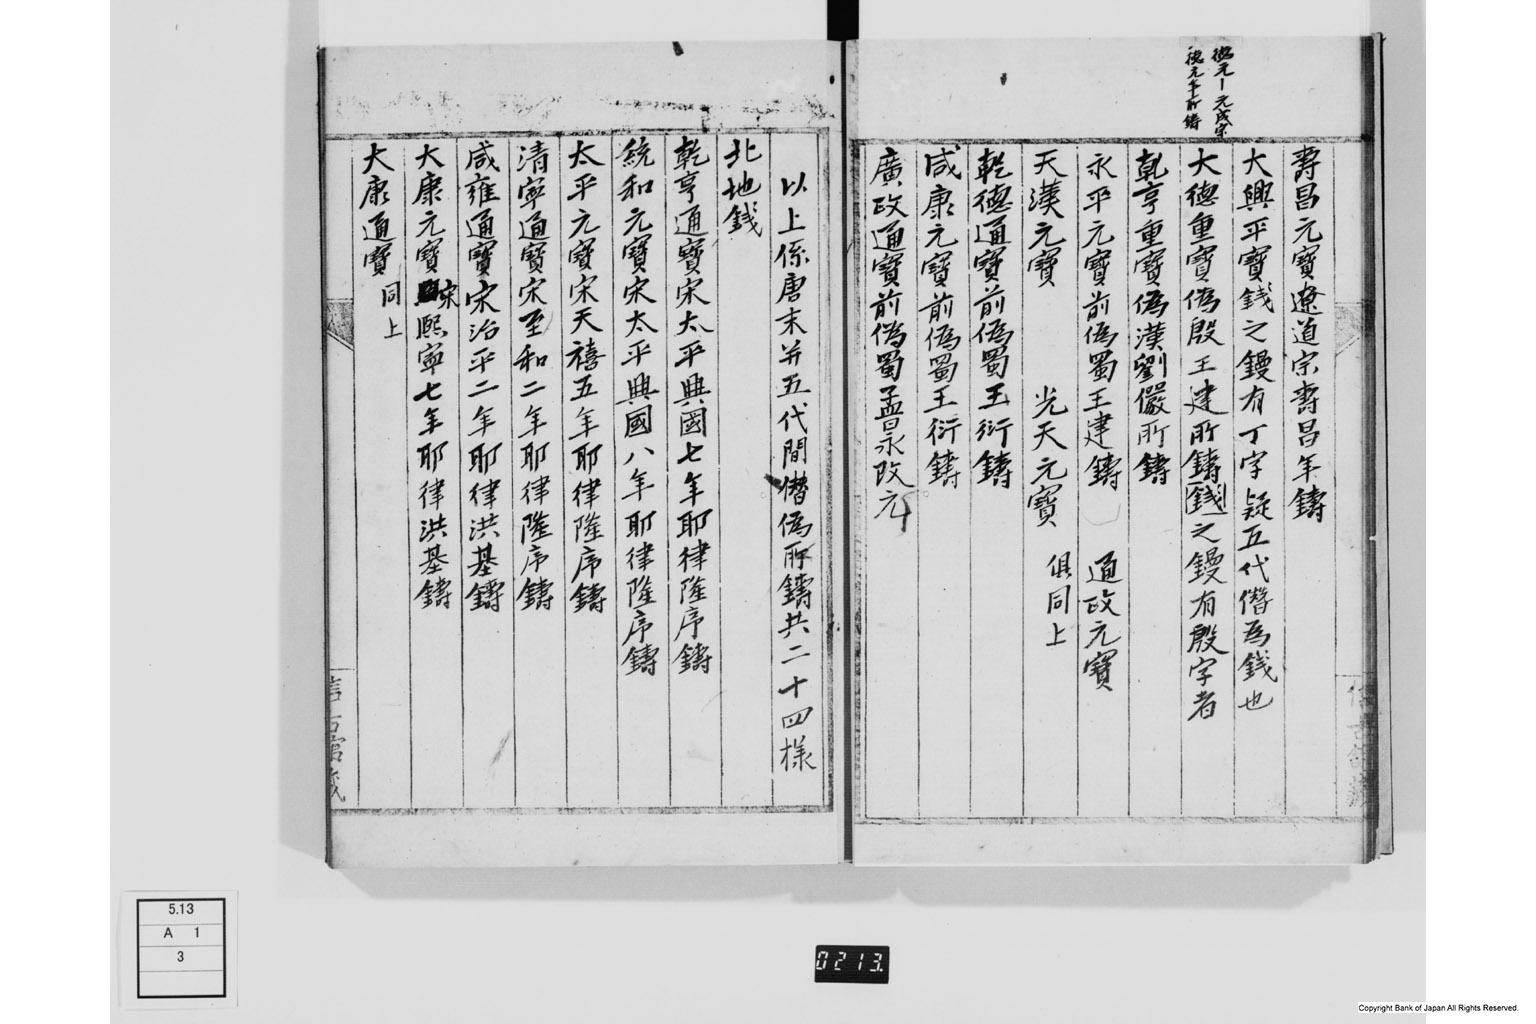 德元年所鑄
壽昌元寶遼道宗壽昌年鑄
大興平寶錢之鏝有丁字疑五代僭爲錢也
大德重寶僞殷王建所鑄錢之鏝有殷字者
乾亨重寶僞漢劉儼所鑄
永平元寶前僞蜀王建鑄 通政元寶
天漢元寶 光天元寶 俱同上
乾德通寶前僞蜀王衍鑄
咸康元寶前僞蜀王衍鑄
廣政通寶前僞蜀孟昶改元
以上係唐末并五代間僭僞所鑄共二十四樣
北地錢
乾亨通寶宋太平興國七年耶律隆序鑄
統和元寶宋太平興國八年耶律隆序鑄
太平元寶宋天禧五年耶律隆序鑄
清寧通寶宋至和二年耶律隆序鑄
咸雍通寶宋治平二年耶律洪基鑄
大康元寶宋熙寧七年耶律洪基鑄
大康通寶同上
5.13
A 1
3
0213.
Copyright Bank of Japan All Rights Reserved.